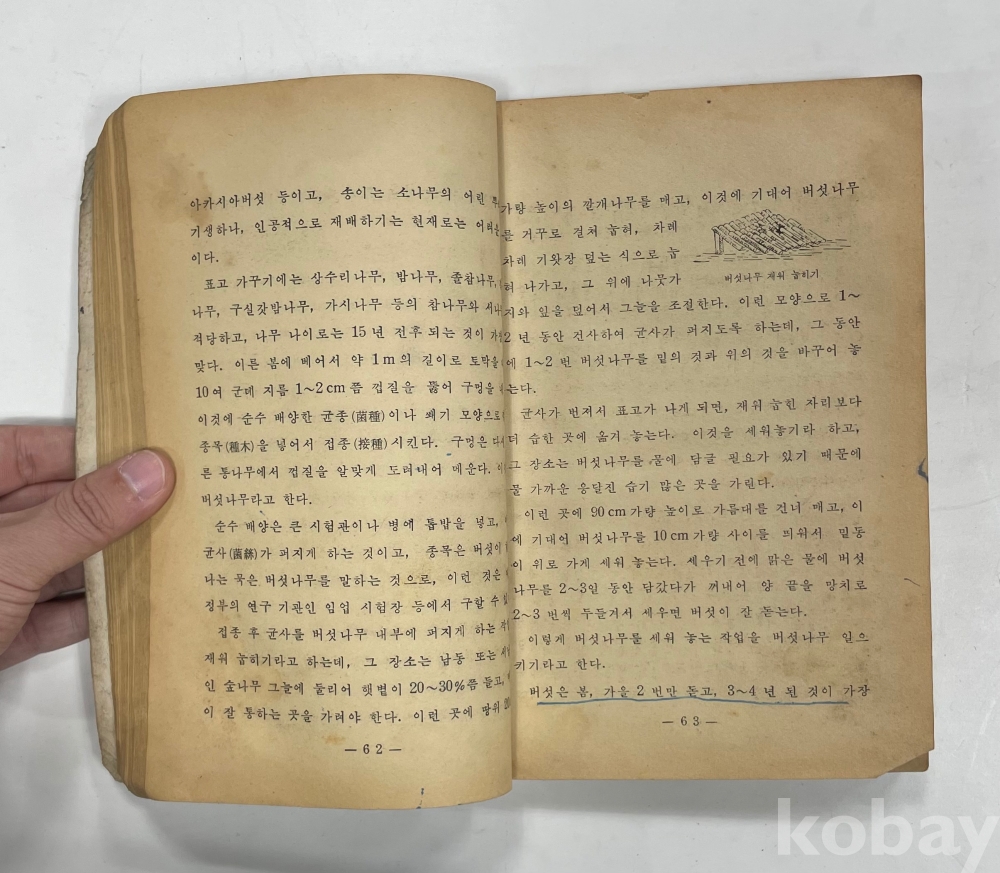 아카시아버섯 등이고, 송이는 소나무의 어린
기생하나, 인공적으로 재배하기는 현재로는
이다.
표고 가꾸기에는 상수리나무, 밤나무, 졸참나무,
나무, 구실갓밤나무, 가시나무 등의 참나무와
적당하고, 나무 나이로는 15 년 전후 되는 것이
맞다. 이른 봄에 베어서 약 1 m 의 길이로 토막을
10여 군데 지름 1~2 cm 쯤 껍질을 뚫어 구멍을
이것에 순수 배양한 균종(菌種)이나 쐐기 모양으로
종목(種木)을 넣어서 접종(接種)시킨다. 구멍은
른 통나무에서 껍질을 알맞게 도려내어 메운다.
버섯나무라고 한다.
순수 배양은 큰 시험관이나 병에 톱밥을 넣고,
균사(菌絲)가 퍼지게 하는 것이고, 종목은 버섯이
나는 묵은 버섯나무를 말하는 것으로, 이런 것은
정부의 연구 기관인 임업 시험장 등에서 구할 수
접종 후 균사를 버섯나무 내부에 퍼지게 하는
재워 눕히기라고 하는데, 그 장소는 남동 또는
인 숲나무 그늘에 둘리어 햇볕이 20~30%쯤 들고,
이 잘 통하는 곳을 가려야 한다. 이런 곳에 땅위
— 6 2 —
가량 높이의 깔개나무를 매고, 이것에 기대어 버섯나무
를 거꾸로 걸쳐 눕혀, 차례
차례 기왓장 덮는 식으로 눕
혀 나가고, 그 위에 나뭇가
버섯나무 재워 눕히기
지와 잎을 덮어서 그늘을 조절한다. 이런 모양으로 1~
2 년 동안 건사하여 균사가 퍼지도록 하는데, 그 동안
에 1~2 번 버섯나무를 밑의 것과 위의 것을 바꾸어 놓
는다.
균사가 번져서 표고가 나게 되면, 재워 눕힌 자리보다
더 습한 곳에 옮겨 놓는다. 이것을 세워놓기라 하고,
그 장소는 버섯나무를 물에 담글 필요가 있기 때문에
물 가까운 응달진 습기 많은 곳을 가린다.
이런 곳에 90 cm 가량 높이로 가름대를 건너 매고, 이
에 기대어 버섯나무를 10 cm 가량 사이를 띄워서 밑동
이 위로 가게 세워 놓는다. 세우기 전에 맑은 물에 버섯
나무를 2~3일 동안 담갔다가 꺼내어 양 끝을 망치로
2~3 번씩 두들겨서 세우면 버섯이 잘 돋는다.
이렇게 버섯나무를 세워 놓는 작업을 버섯나무 일으
키기라고 한다.
버섯은 봄, 가을 2 번만 돋고, 3~4 년 된 것이 가장
— 6 3 —
kobay